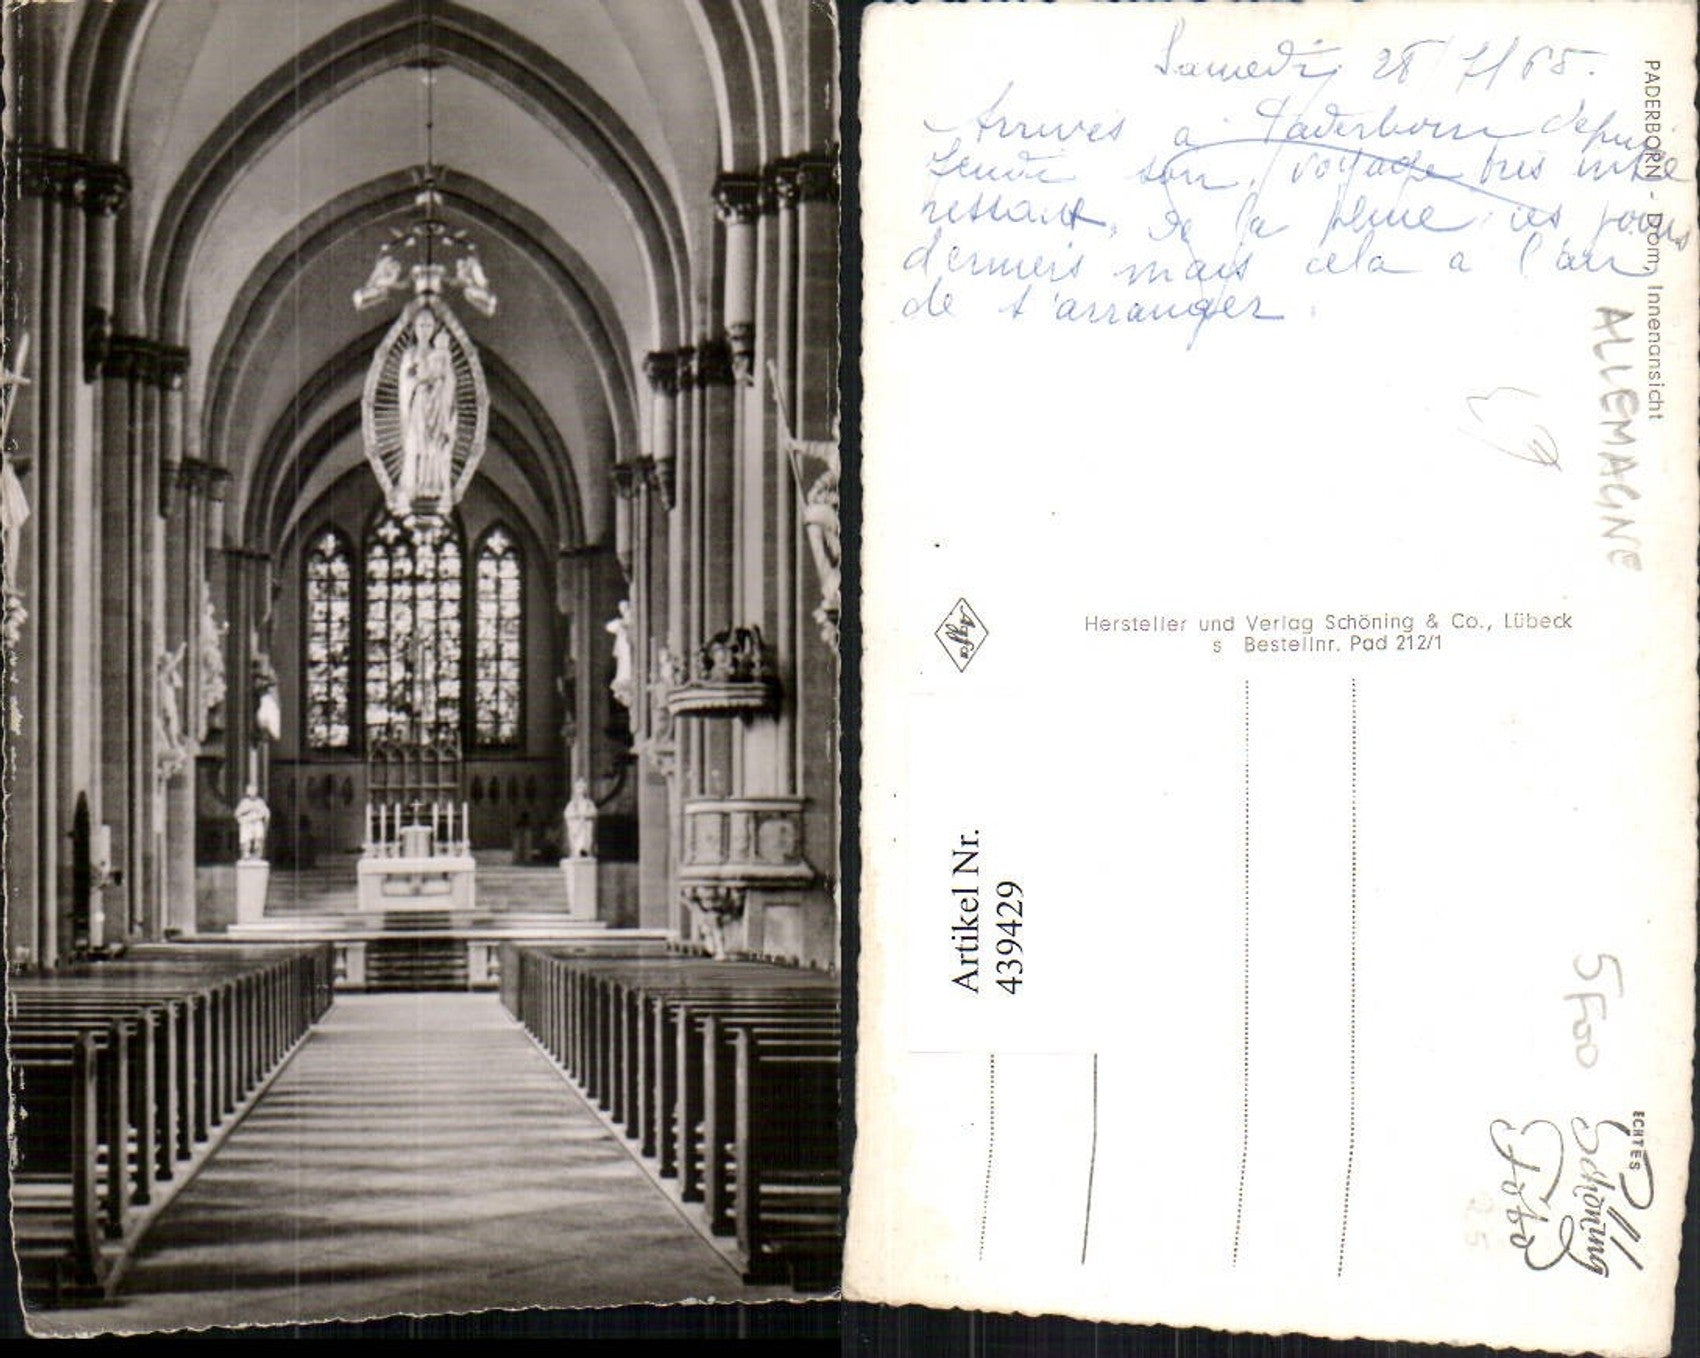 Samedi 28/7/65.
Arrivés à Paderborn depuis
Jeudi soir, voyage très inté
ressant, de la pluie ces jours
derniers mais cela a l'air
de s'arranger.
PADERBORN - Dom, Innenansicht
ALLEMAGNE
Agfa
Hersteller und Verlag Schöning & Co., Lübeck
s Bestellnr. Pad 212/1
Artikel Nr.
4394429
5F00
ECHTES
Schöning
Foto
25